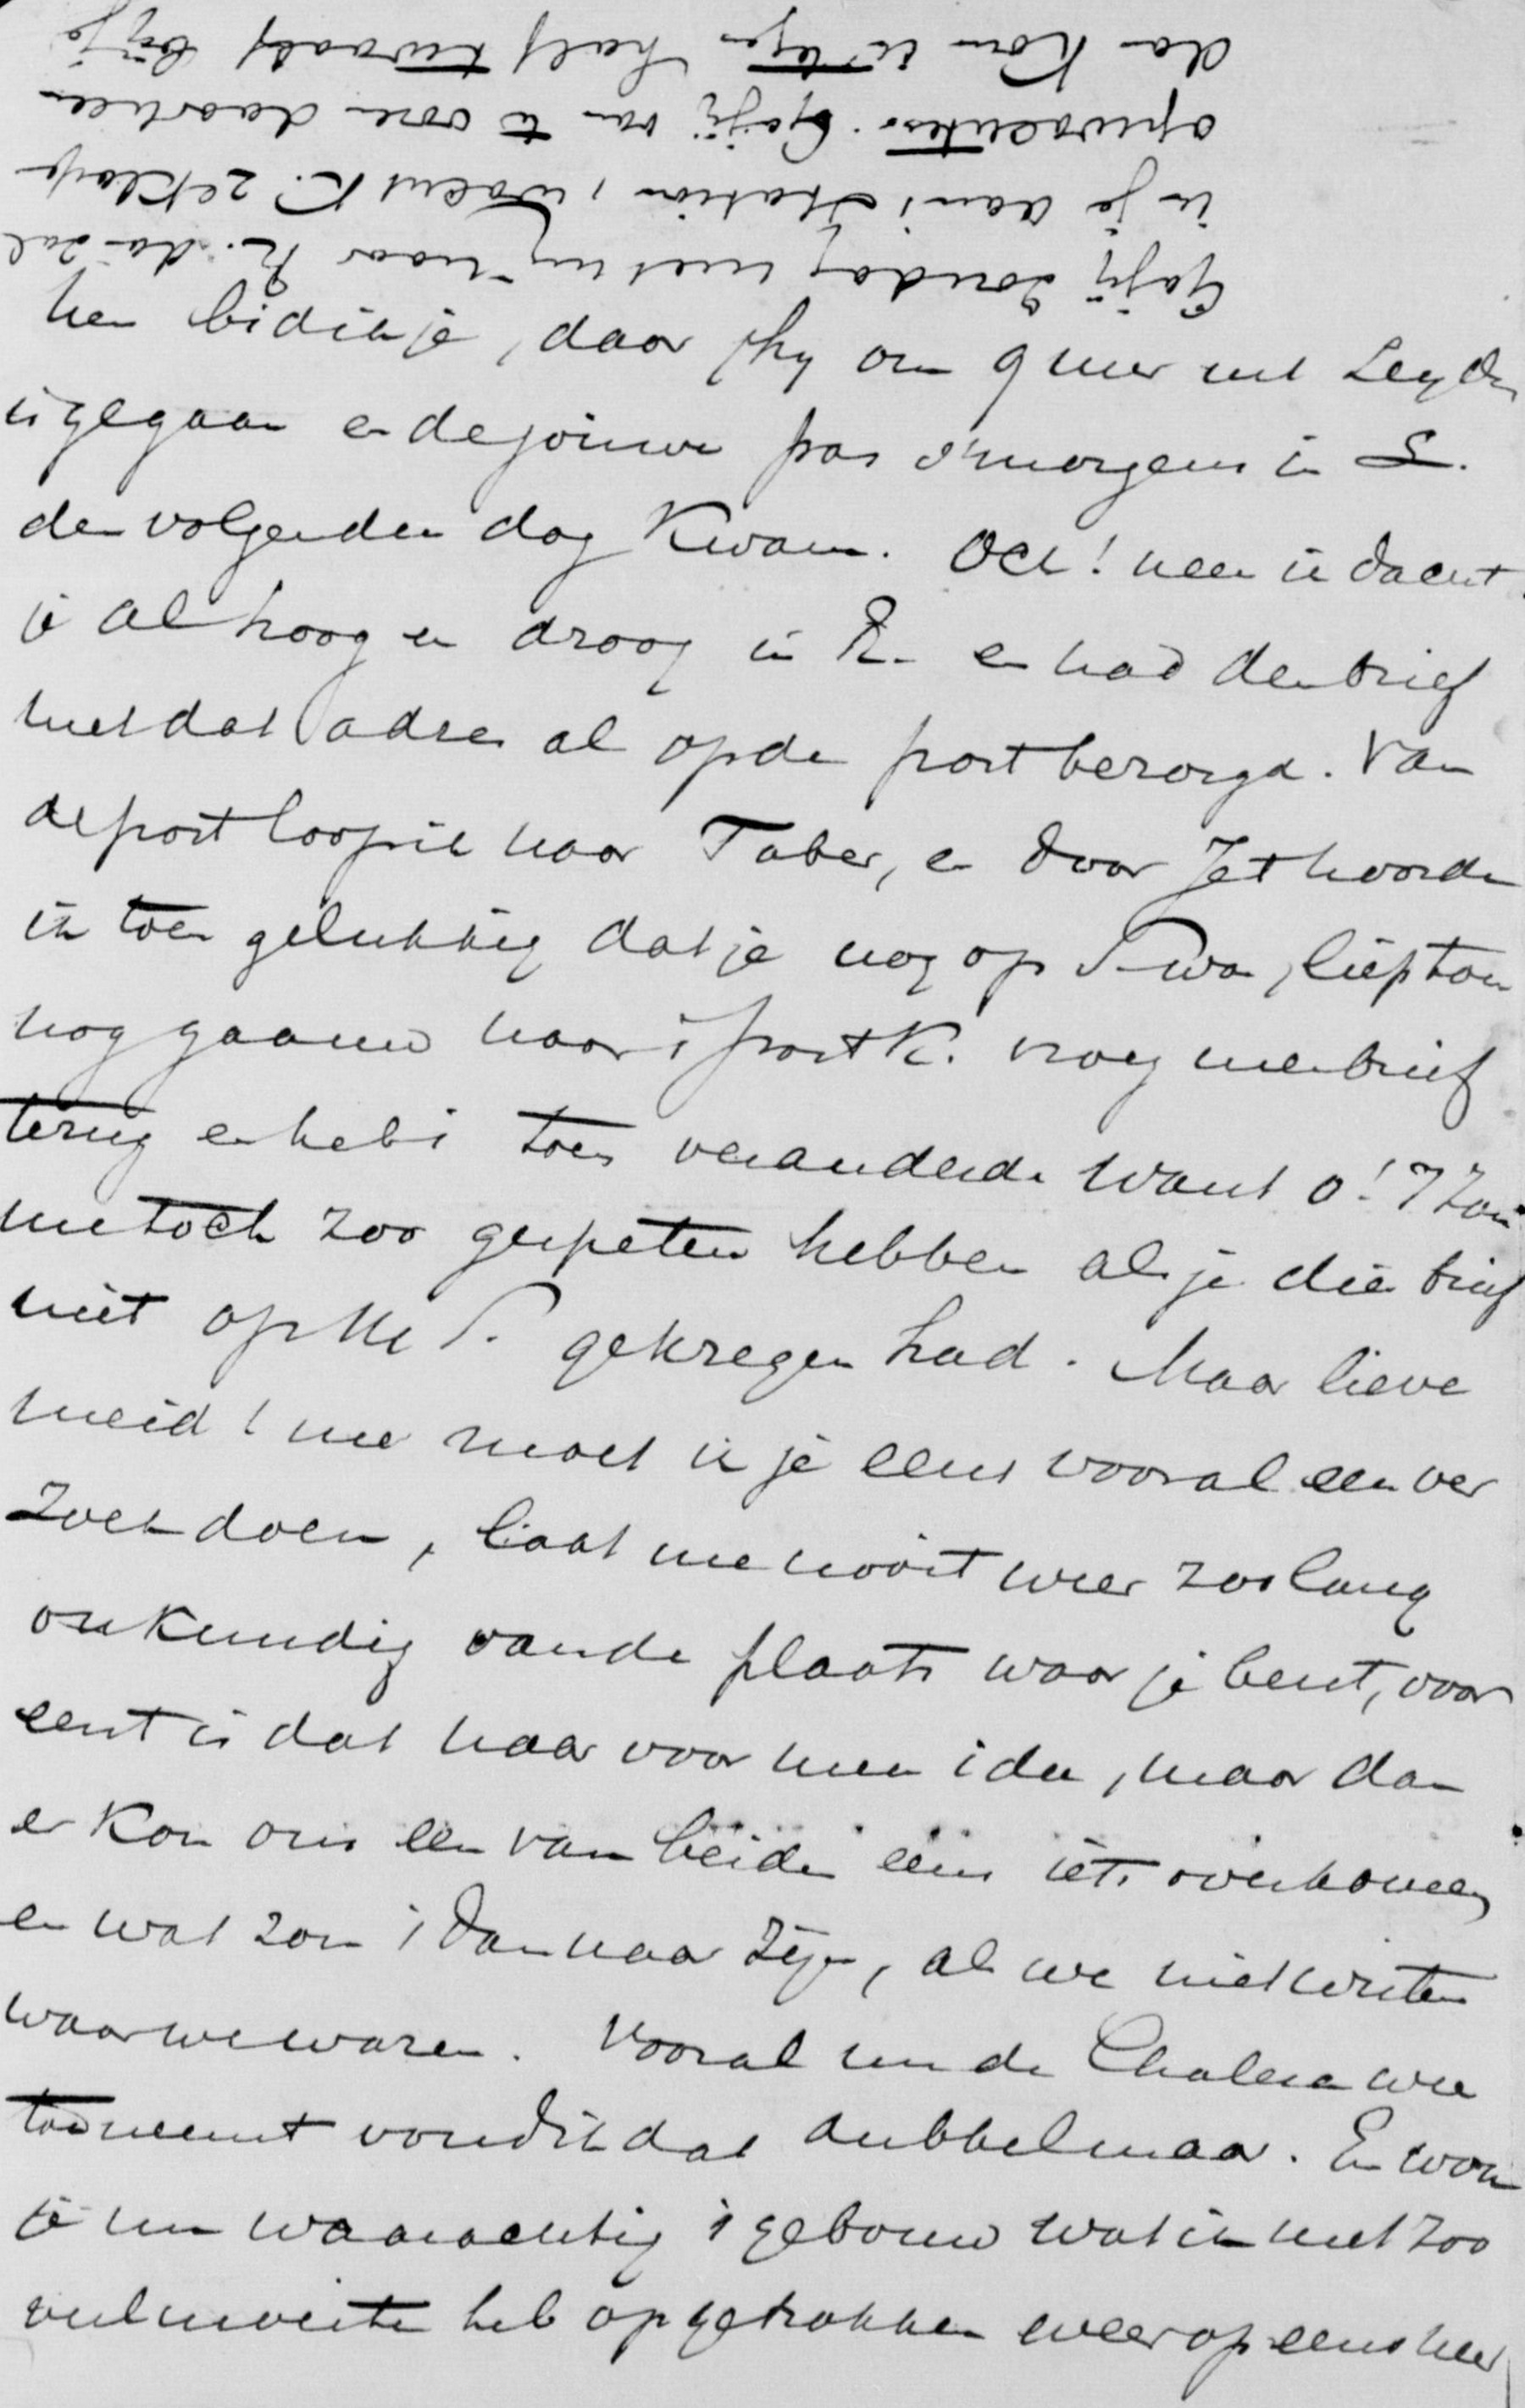 Ga jij Zondag met mij naar R. dan zal
ik je aan 't station, wacht K. 2e Klasse
opwachten. Ga jij van te voren daarheen
dan kom ik tegen half twaalf bij je
ken bid ik je, daar hij om 9 uur uit Leyden
is gegaan en de jouwe pas 's morgens in L.
den volgenden dag kwam. Och! neen ik dacht
je al hoog en droog in R. en had den brief
met dat adres al op de post bezorgd. Van
de post loop ik naar Taber, en door Jet hoorde
ik toen gelukkig dat je nog op was, liep toen
nog gaauw naar 't postk. vroeg mijn brief
terug en heb 't toen veranderd. Want o! 't zou
me toch zoo gespeten hebben als je dien brief
niet op gekregen had. Maar lieve
meid! nu moet ik je eens vooral een ver
zoek doen, laat me nooit weer zoo lang
onkundig van de plaats waar je bent, voor
eerst is dat naar voor mijn idee, maar dan
er kon ons een van beiden eens iets overkomen
en wat zou 't dan naar zijn, als we niet wisten
waar we waren. Vooral nu de Cholera weer
toeneemt vond ik dat dubbel naar. En woon
je nu waarachtig 't gebouw wat ik met zoo
veel moeite heb opgetrokken weer op eens neer